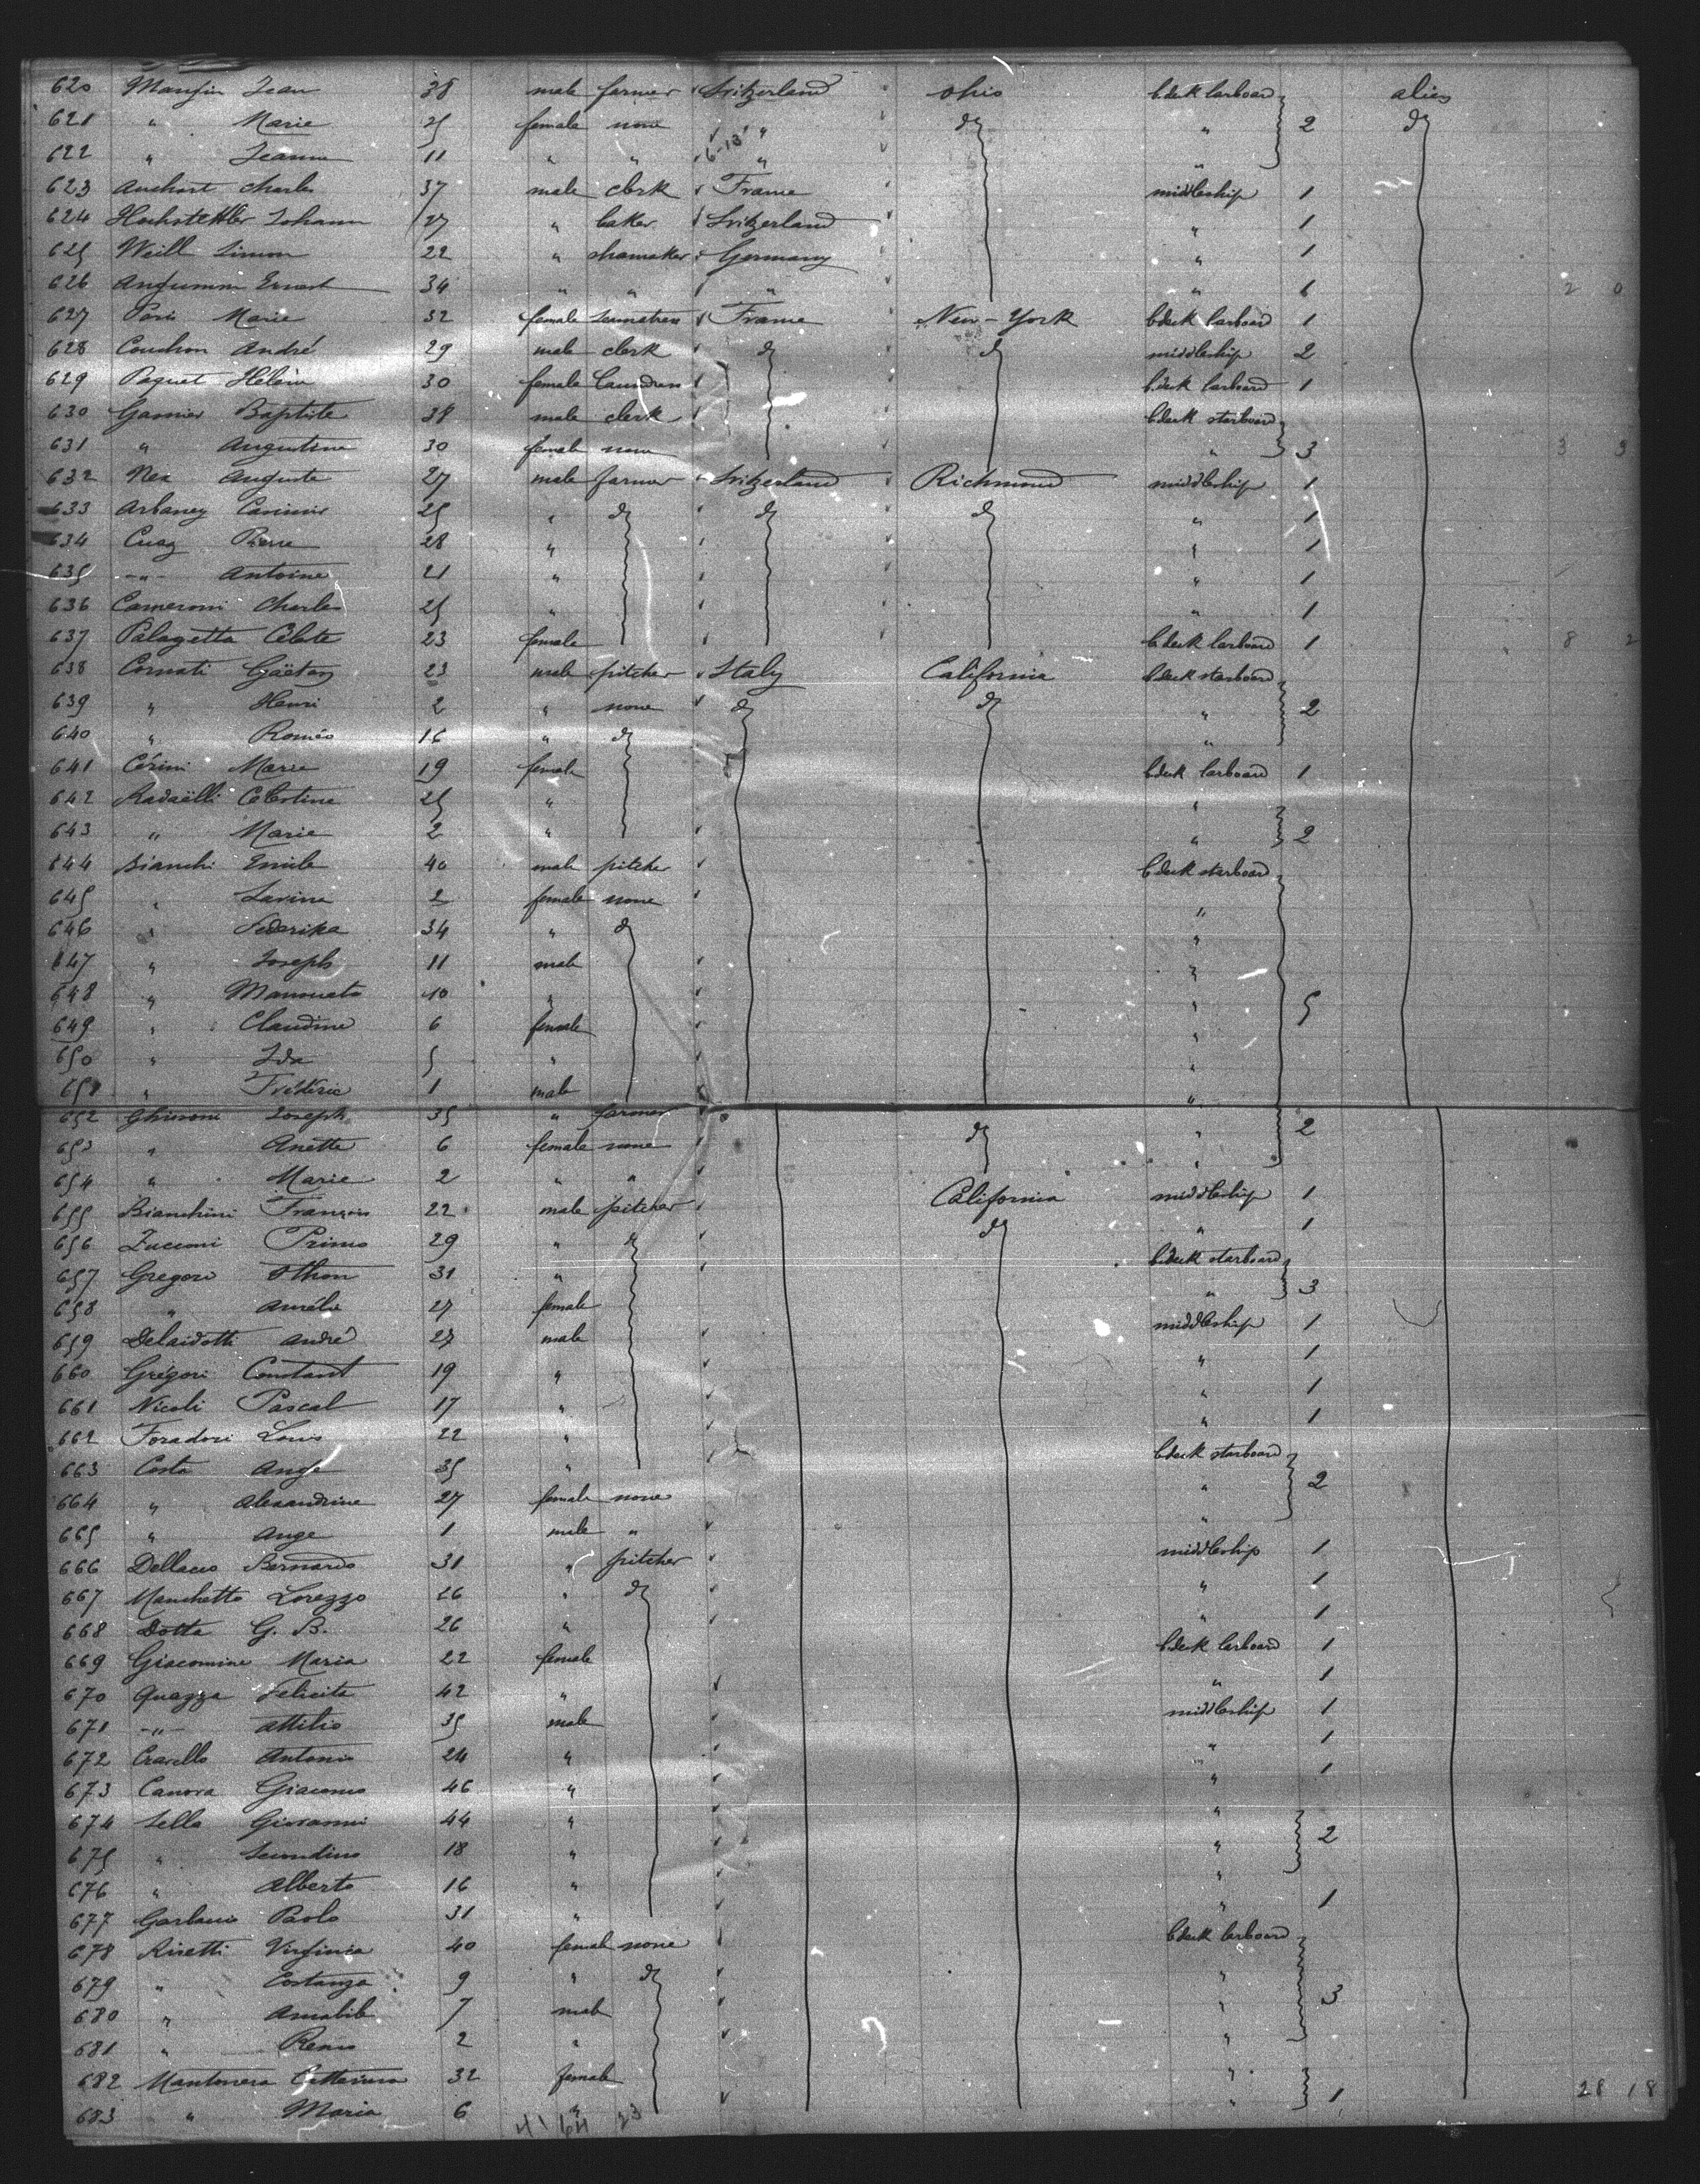 620 Mangin Jean 38 male farmer Svitzerland ohio b.deck larboard alien
621 " Marie 25 female none " do " 2 do
622 " Jeanne 11 " " 6-13 " "
623 Anchart Charles 37 male clerk France middleship 1
624 Hochstettler Johann 27 " baker Svitzerland " 1
625 Weill Simon 22 " shamaker Germany " 1
626 Ernest 34 " " " " 2 0
627 Paris Marie 32 female France New-York b.deck larboard 1
628 Couchon André 29 male clerk do do middleship 2
629 Paquet Hélène 30 female b.deck larboard 1
630 Garnier Baptiste 38 male clerk b.deck starboard
631 " Augustine 30 female none " 3 3 3
632 Nex Auguste 27 male farmer Svitzerland Richmond middleship 1
633 Arbaney Casimir 25 " do do do " 1
634 Cuaz Pierre 28 " " 1
635 -"- Antoine 21 " " 1
636 Cameroni Charles 25 " " 1
637 Palagetta 23 female b.deck larboard 1 8 2
638 Cornati Gaëtan 23 male pitcher Italy California b.deck starboard
639 " Henri 2 " none do do " 2
640 " Roméo 16 " do "
641 Cérini Marie 19 female b.deck larboard 1
642 Radaëlli Célestine 25 " "
643 " Marie 2 " " 2
644 Bianchi Emile 40 male pitcher b.deck starboard
645 " Lavina 2 female none "
646 " Federika 34 " do "
647 " Joseph 11 male "
648 " 10 " " 5
649 " Claudine 6 female "
650 " Ida 5 " "
651 " Fréderic 1 male "
652 Joseph 35 " farmer
653 " Anette 6 female none do " 2
654 " Marie 2 " " "
655 Bianchini François 22 male pitcher California middleship 1
656 Zucconi Primo 29 " " do " 1
657 Gregori Othon 31 " b.deck starboard
658 " Aurélie 27 female " 3
659 Delaidotti André 27 male middleship 1
660 Grégori Constant 19 " " 1
661 Nicoli Pascal 17 " " 1
662 Foradori Louis 22 " " 1
663 Costa Ange 35 " b.deck starboard
664 " Alexandrine 27 female none " 2
665 " Ange 1 male " "
666 Bernardo 31 " pitcher middleship 1
667 Manchetto Lorezzo 26 " do " 1
668 Dotta G. B. 26 " " 1
669 Giacomina Maria 22 female b.deck larboard 1
670 Quazza Felicita 42 " " 1
671 -"- Attilio 35 male middleship 1
672 Antonio 24 " " 1
673 Canova Giacomo 46 " " 1
674 Sella Giovanni 44 " "
675 " Secondino 18 " " 2
676 " Alberto 16 " "
677 Paolo 31 " " 1
678 Rivetti Virginia 40 female none b.deck larboard
679 " Costanza 9 " do "
680 " Amabile 7 male " 3
681 " Remo 2 " "
682 Catterina 32 female "
683 " Maria 6 " " 1 28 18
41 64 23